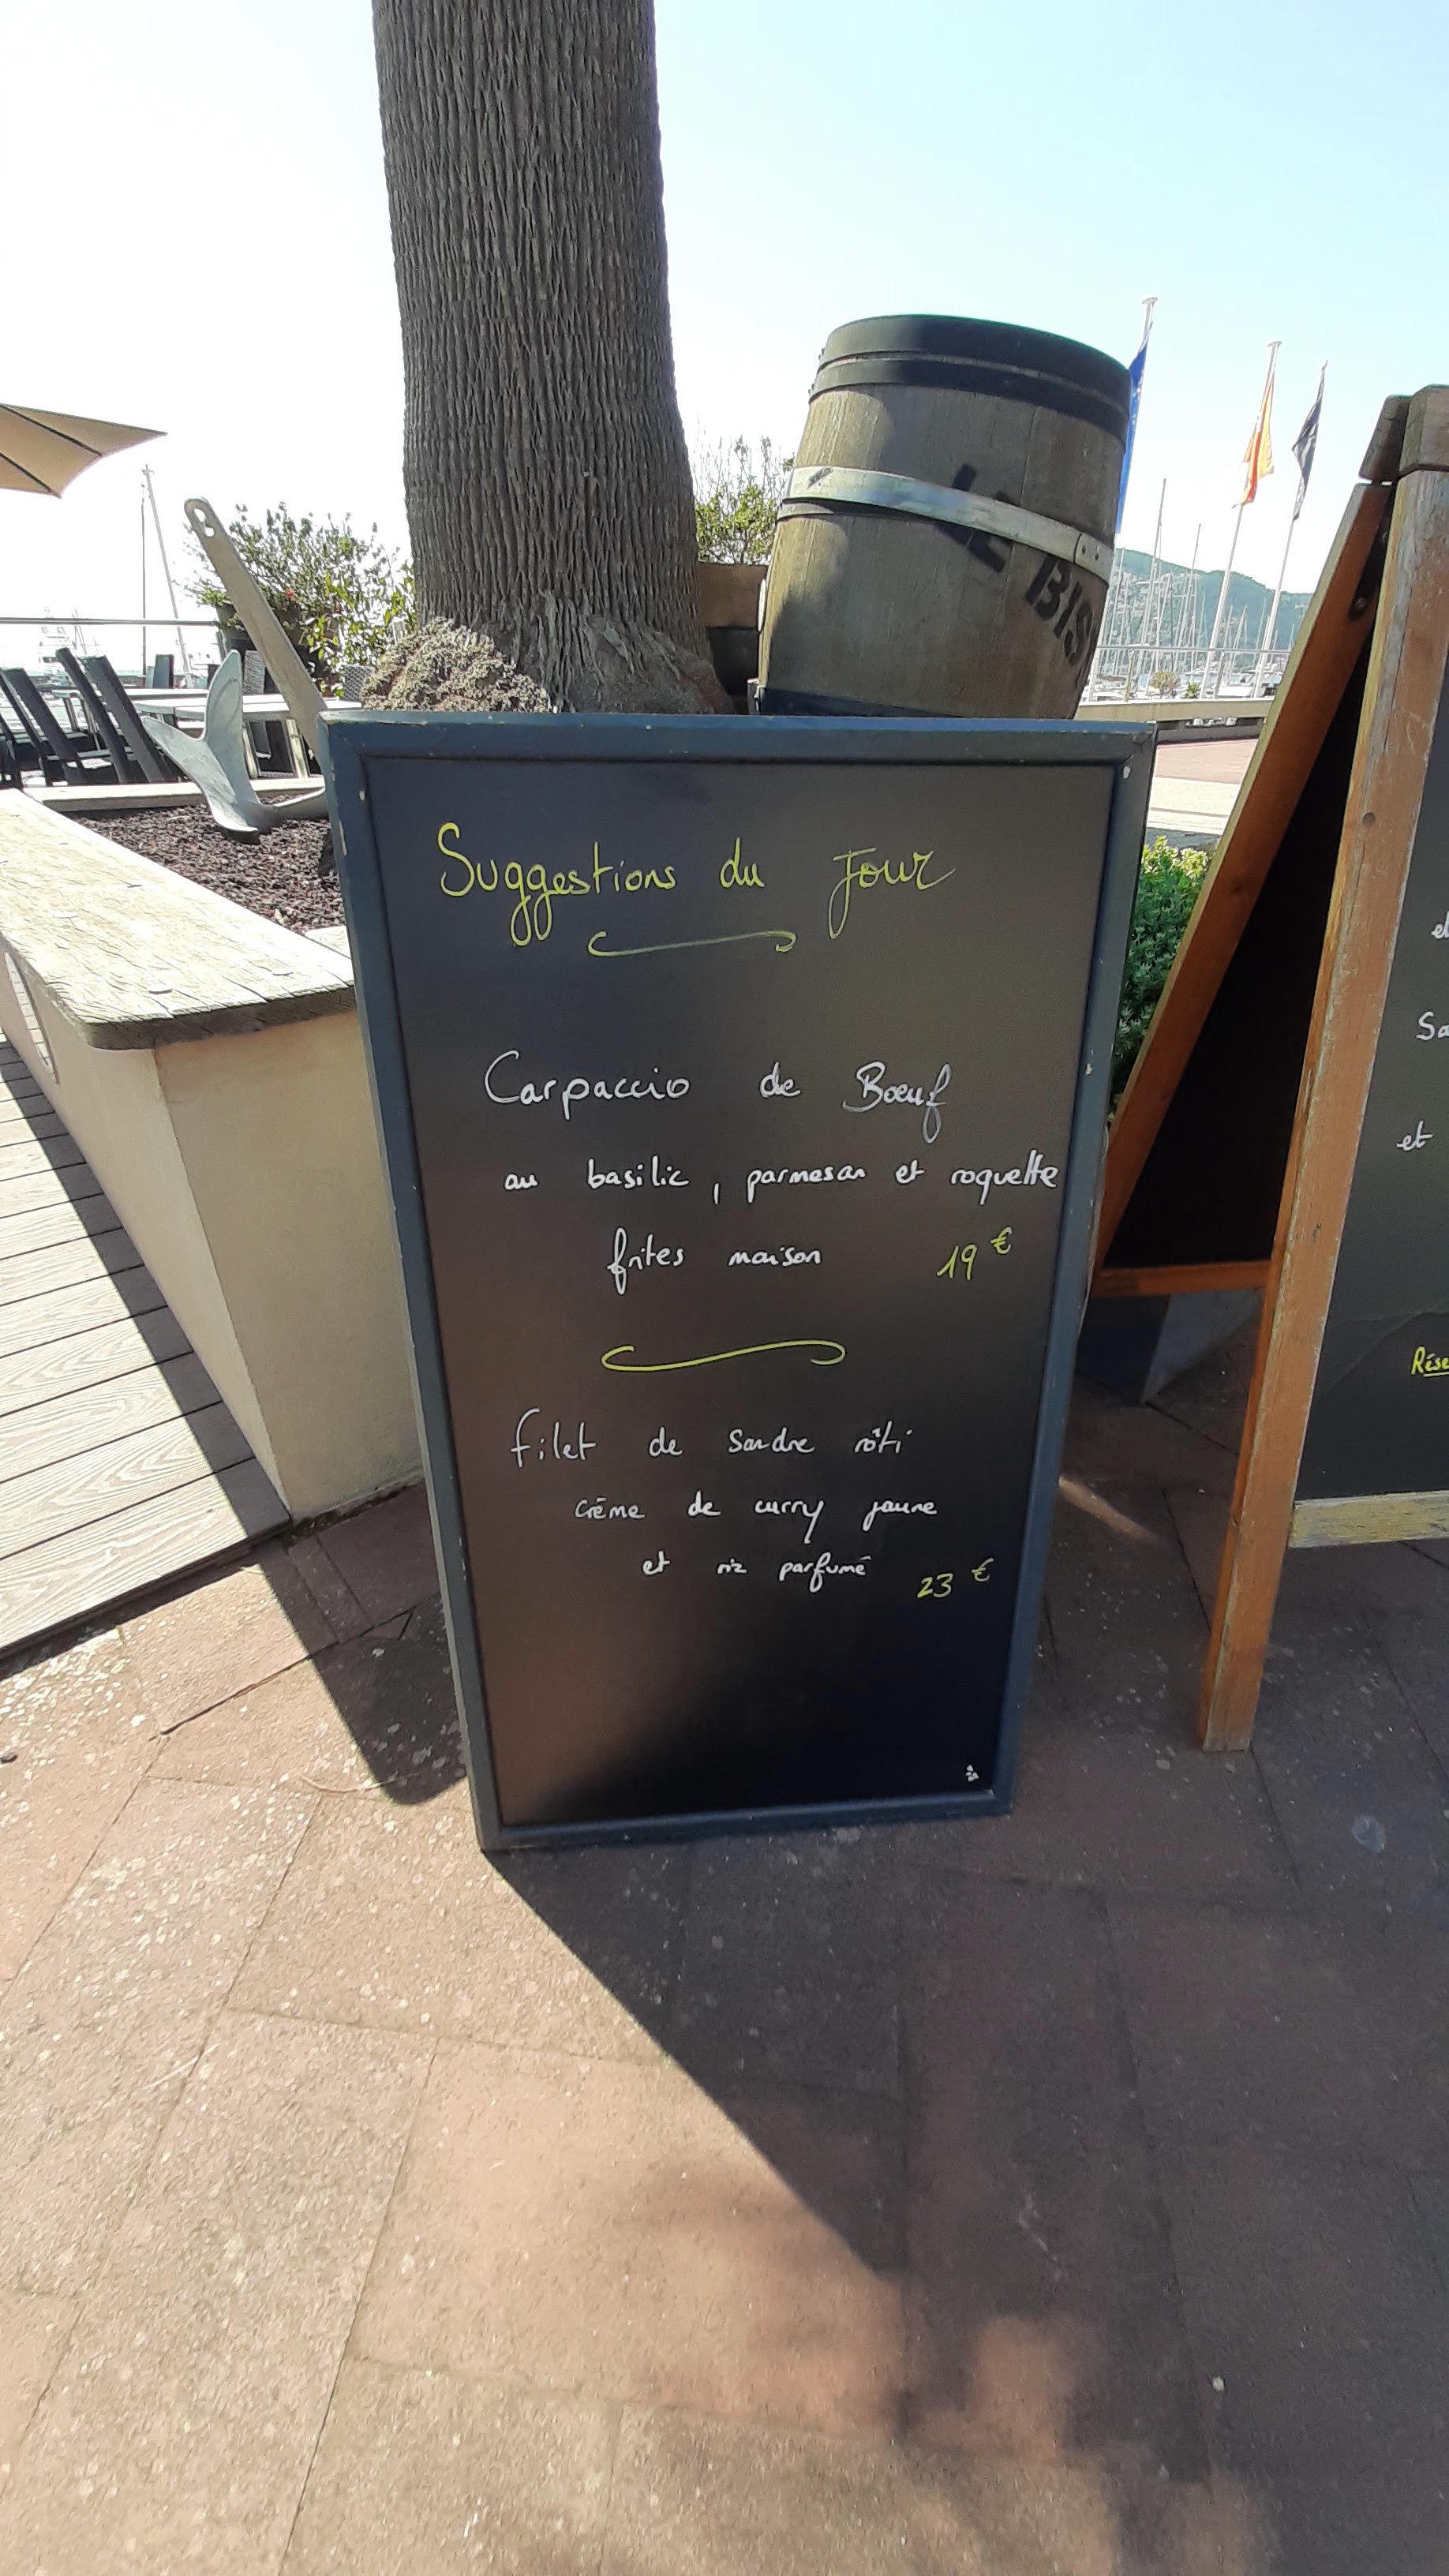 LE BIS
Suggestions du Jour
Carpaccio de Bœuf
au basilic, parmesan et roquette
frites maison 19 €
filet de sandre rôti
crème de curry jaune
et riz parfumé 23 €
et